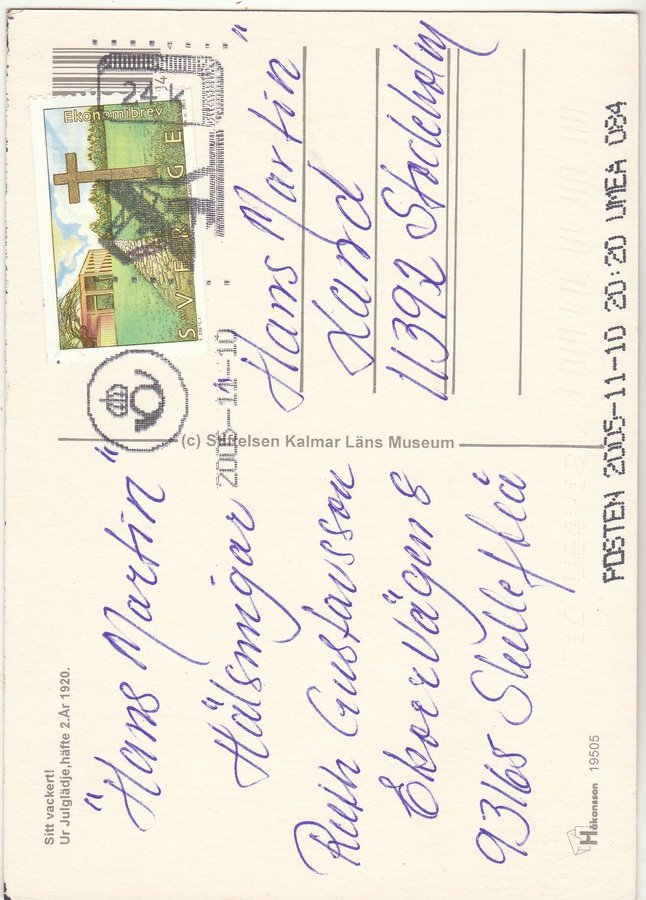 Sitt vackert!
Ur Julglädje,häfte 2.År 1920.
"Hans Martin"
Hälsnigar
Ruth Gustavsson
Ekorrvägen 8
93165 Skellefteå
Håkansson 19505
(c) Stiftelsen Kalmar Läns Museum
Ekonomibrev
SVERIGE
2005-11-10
Hans Martin"
Xand
11392 Stockholm
POSTEN 2005-11-10 20:20 UMEA 084